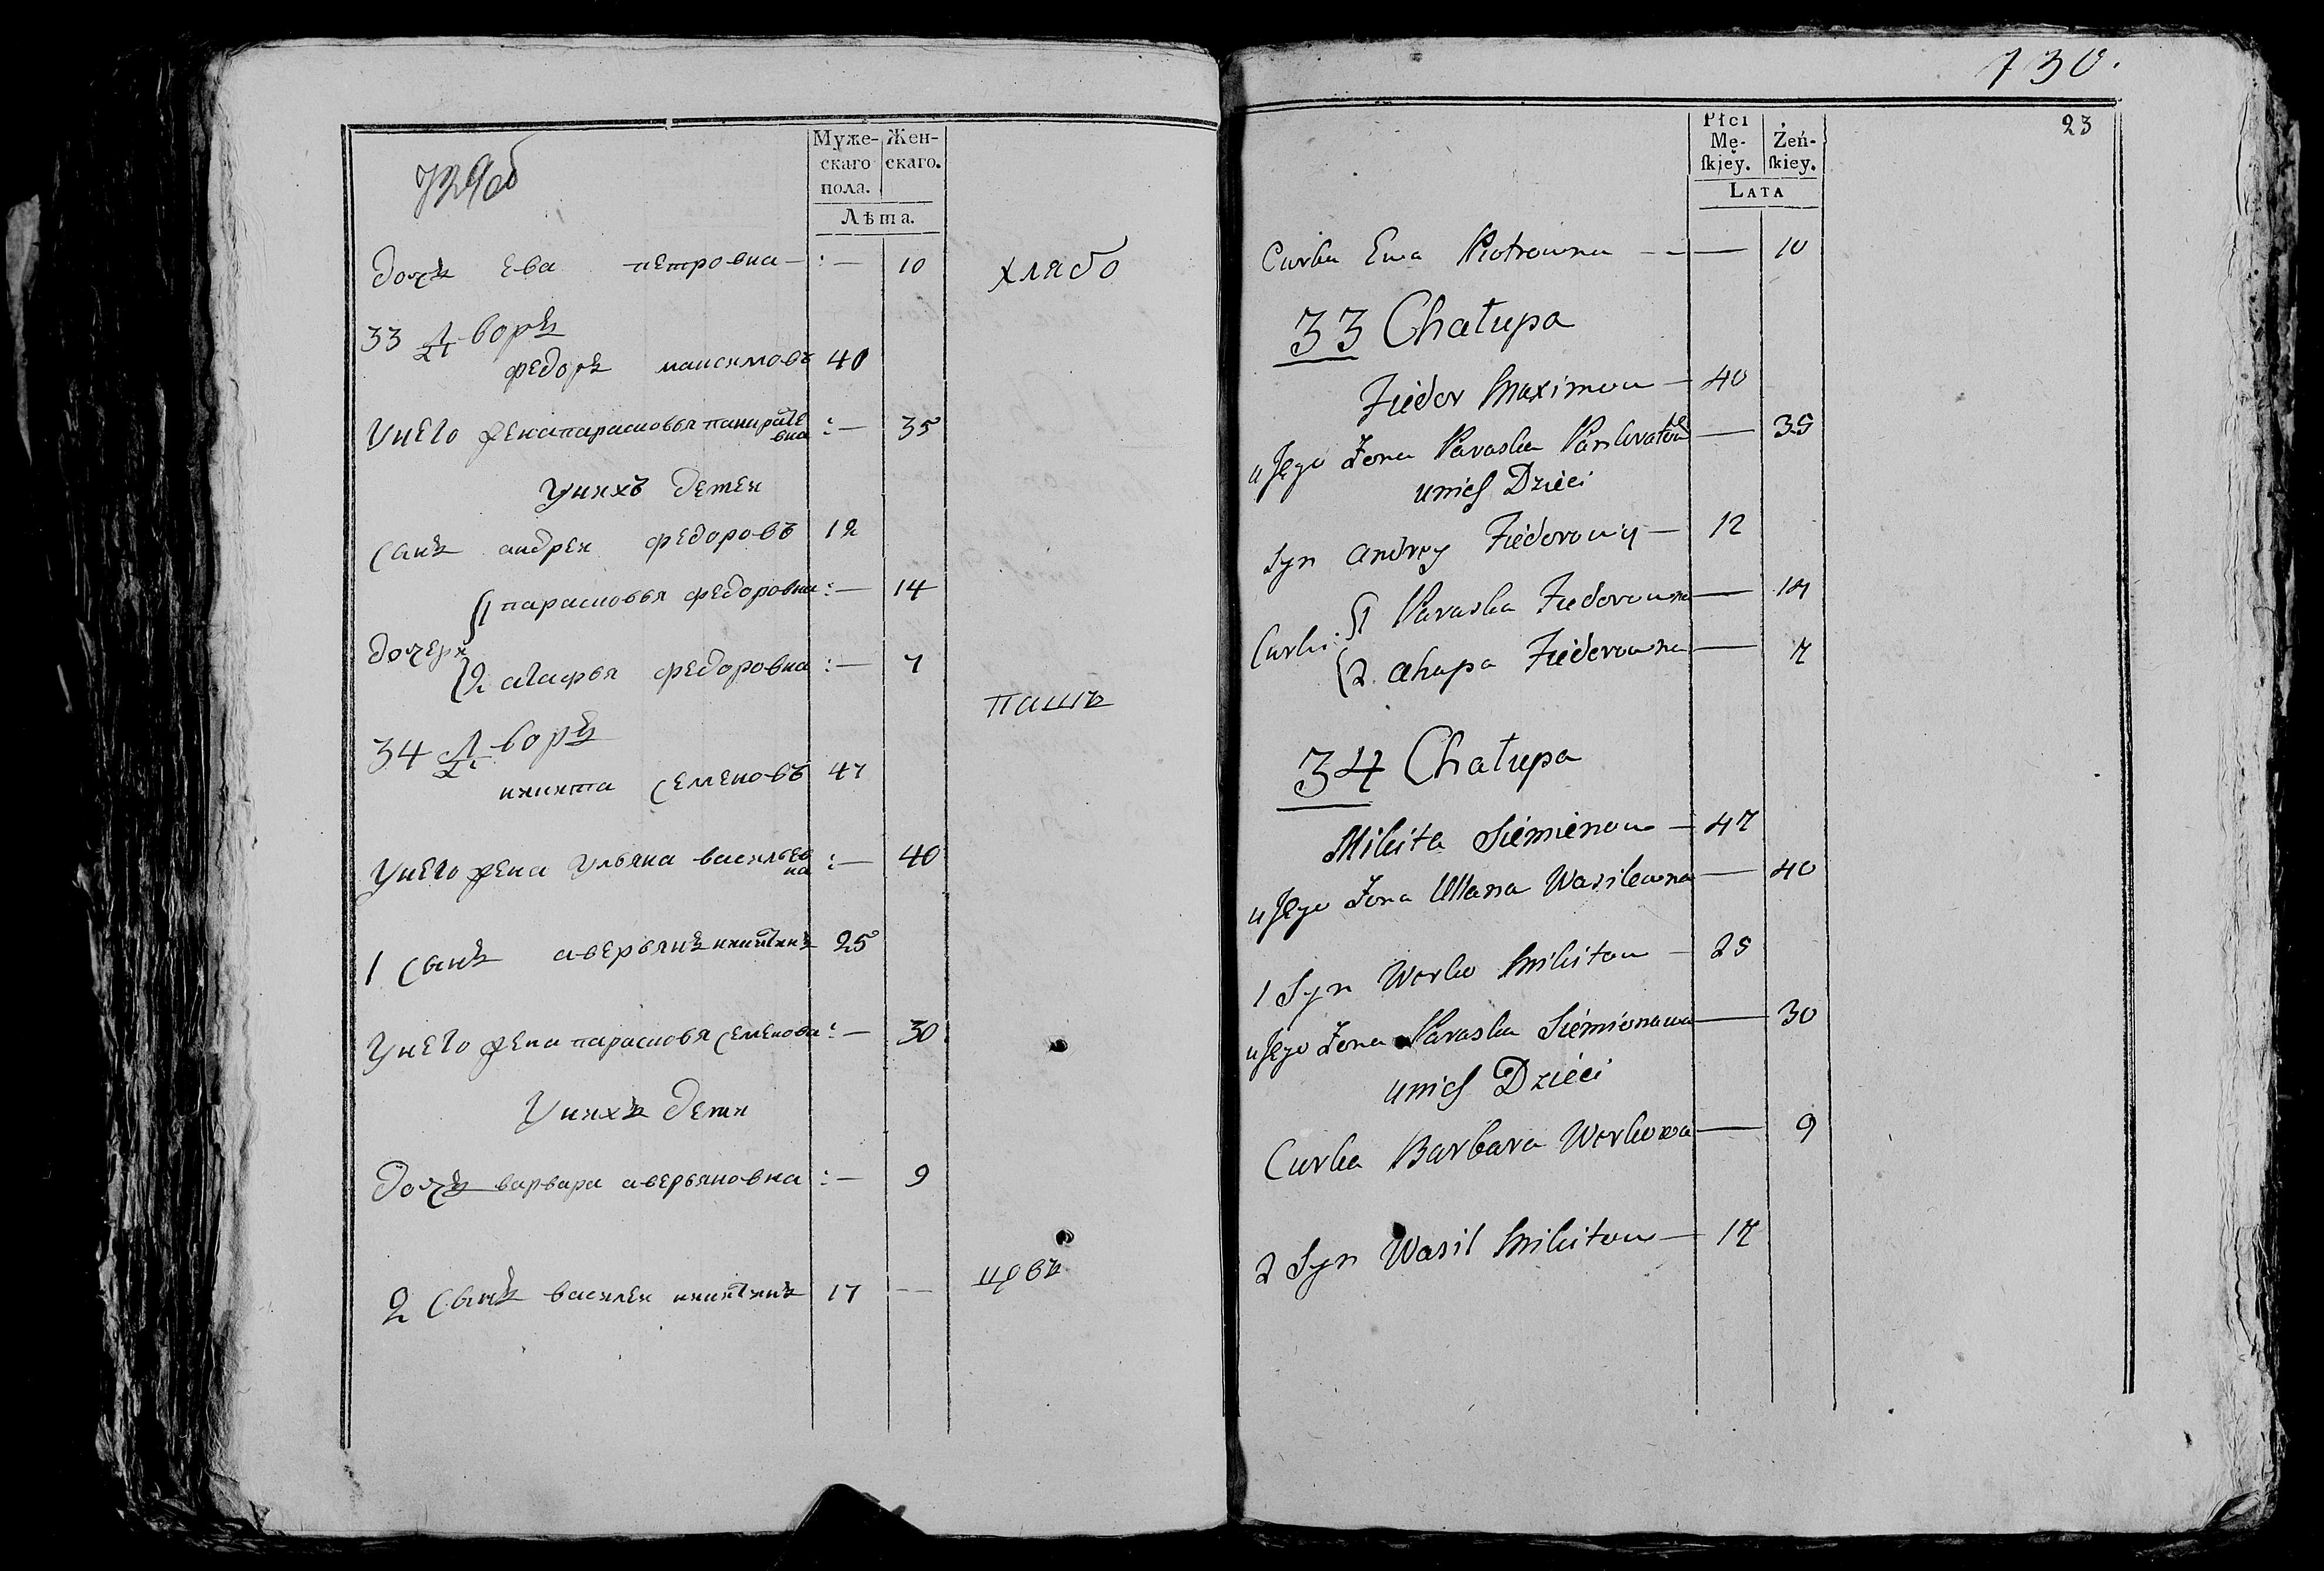 729об
Муже-
скаго
пола.
Жен-
скаго.
Лѣта.
дочь Ева петровна — : — 10 хлябо
33 Дворъ
федоръ максимовъ 40
У него жена парасковья панкратье
вна : — 35
У нихъ детеи
Сынъ андреи федоровъ 12
1 парасковья федоровна : — 14
дочери
2 агафья федоровна : — 7
пашъ
34 Дворъ
никита семеновъ 47
У него жена Ульяна васильев
на : — 40
1 Сынъ аверьянъ никитинъ 25
У него жена парасковья семенова : — 30
У нихъ дети
дочь варвара аверьяновна : — 9
2 Сынъ василеи никитинъ 17 —
цовъ
730.
23
Płci
Mę-
ſkiey.
Żeń-
ſkiey.
LATA
Curka Ewa Piotrowna — — 10
33 Chałupa
Fiedor Maximow — 40
u Jego Żona Paraska Pankratow — 35
u nich Dzieci
Syn Andrey Fiedorowy — 12
1 Paraska Fiedorowna — 14
Curki:
2. Ahapa Fiedorowna — 7
34 Chałupa
Mikita Siemienow — 47
u Jego Żona Ullana Wasilewna — 40
1 Syn Werko Mikitow — 25
u Jego Żona Paraska Siemionawa — 30
u nich Dzieci
Curka Barbara Werkowa — 9
2 Syn Wasil Mikitow — 17